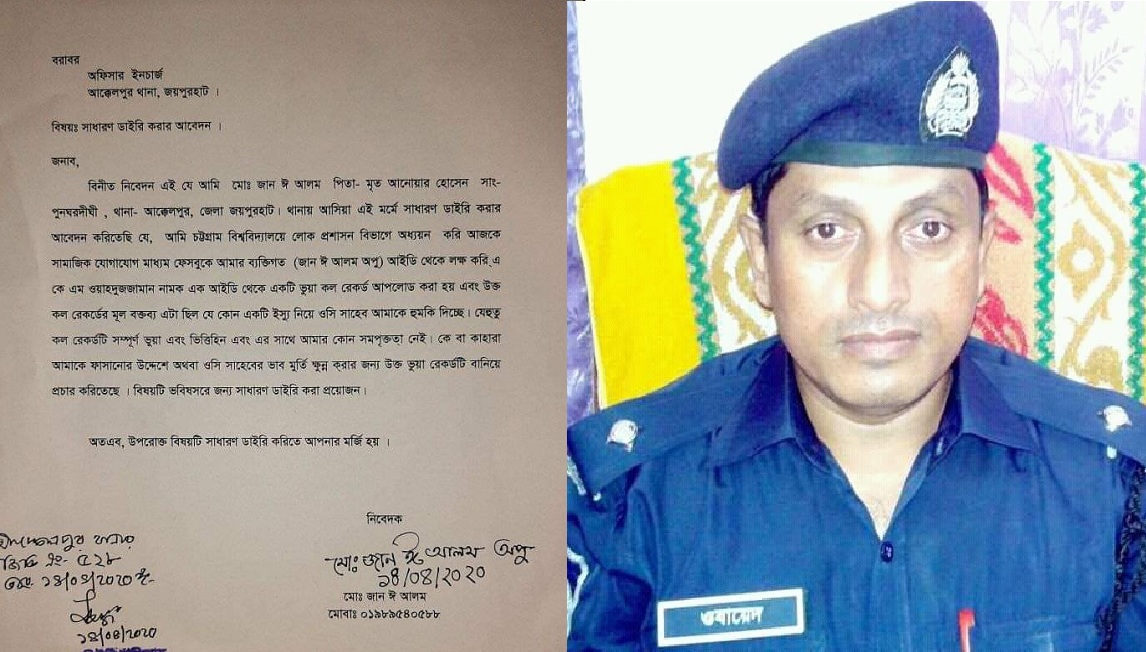 বরাবর
অফিসার ইনচার্জ
আক্কেলপুর থানা, জয়পুরহাট ।
বিষয়ঃ সাধারণ ডাইরি করার আবেদন ।
জনাব,
বিনীত নিবেদন এই যে আমি মোঃ জান ঈ আলম পিতা- মৃত আনোয়ার হোসেন সাং-
পুনঘরদীঘী , থানা- আক্কেলপুর, জেলা জয়পুরহাট। থানায় আসিয়া এই মর্মে সাধারণ ডাইরি করার
আবেদন করিতেছি যে, আমি চট্টগ্রাম বিশ্ববিদ্যালয়ে লোক প্রশাসন বিভাগে অধ্যয়ন করি আজকে
সামাজিক যোগাযোগ মাধ্যম ফেসবুকে আমার ব্যক্তিগত (জান ঈ আলম অপু) আইডি থেকে লক্ষ করি,এ
কে এম ওয়াহদুজজামান নামক এক আইডি থেকে একটি ভুয়া কল রেকর্ড আপলোড করা হয় এবং উক্ত
কল রেকর্ডের মূল বক্তব্য এটা ছিল যে কোন একটি ইস্যু নিয়ে ওসি সাহেব আমাকে হুমকি দিচ্ছে। যেহুতু
কল রেকর্ডটি সম্পূর্ণ ভুয়া এবং ভিত্তিহিন এবং এর সাথে আমার কোন সমপৃক্ততা নেই। কে বা কাহারা
আমাকে ফাসানোর উদ্দেশে অথবা ওসি সাহেবের ভাব মুর্তি ক্ষুন্ন করার জন্য উক্ত ভুয়া রেকর্ডটি বানিয়ে
প্রচার করিতেছে । বিষয়টি ভবিষসরে জন্য সাধারণ ডাইরি করা প্রয়োজন।
অতএব, উপরোক্ত বিষয়টি সাধারণ ডাইরি করিতে আপনার মর্জি হয় ।
নিবেদক
মোঃ জান ঈ আলম অপু
১৪/০৪/২০২০
মোঃ জান ঈ আলম
মোবাঃ ০১৯৮৯৫৪০৫৮৮
আক্কেলপুর থানার
জিডি নং- ৫২৮
১৪/০৪/২০২০
ওবায়েদ